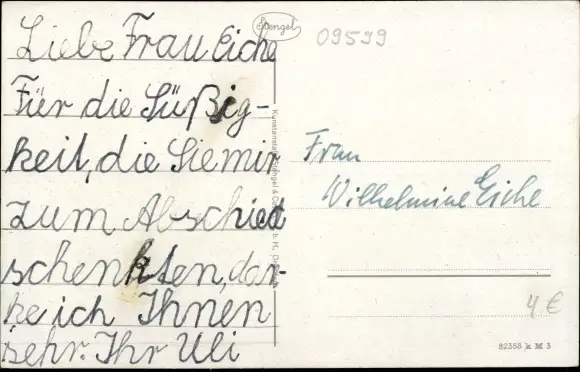 Liebe Frau Eiche
Für die Süßig-
keit, die Sie mir
zum Abschied
schenkten, dan-
ke ich Ihnen
sehr. Ihr Uli
Stengel
09599
Frau
Wilhelmine Eiche
4 €
82358 k M 3